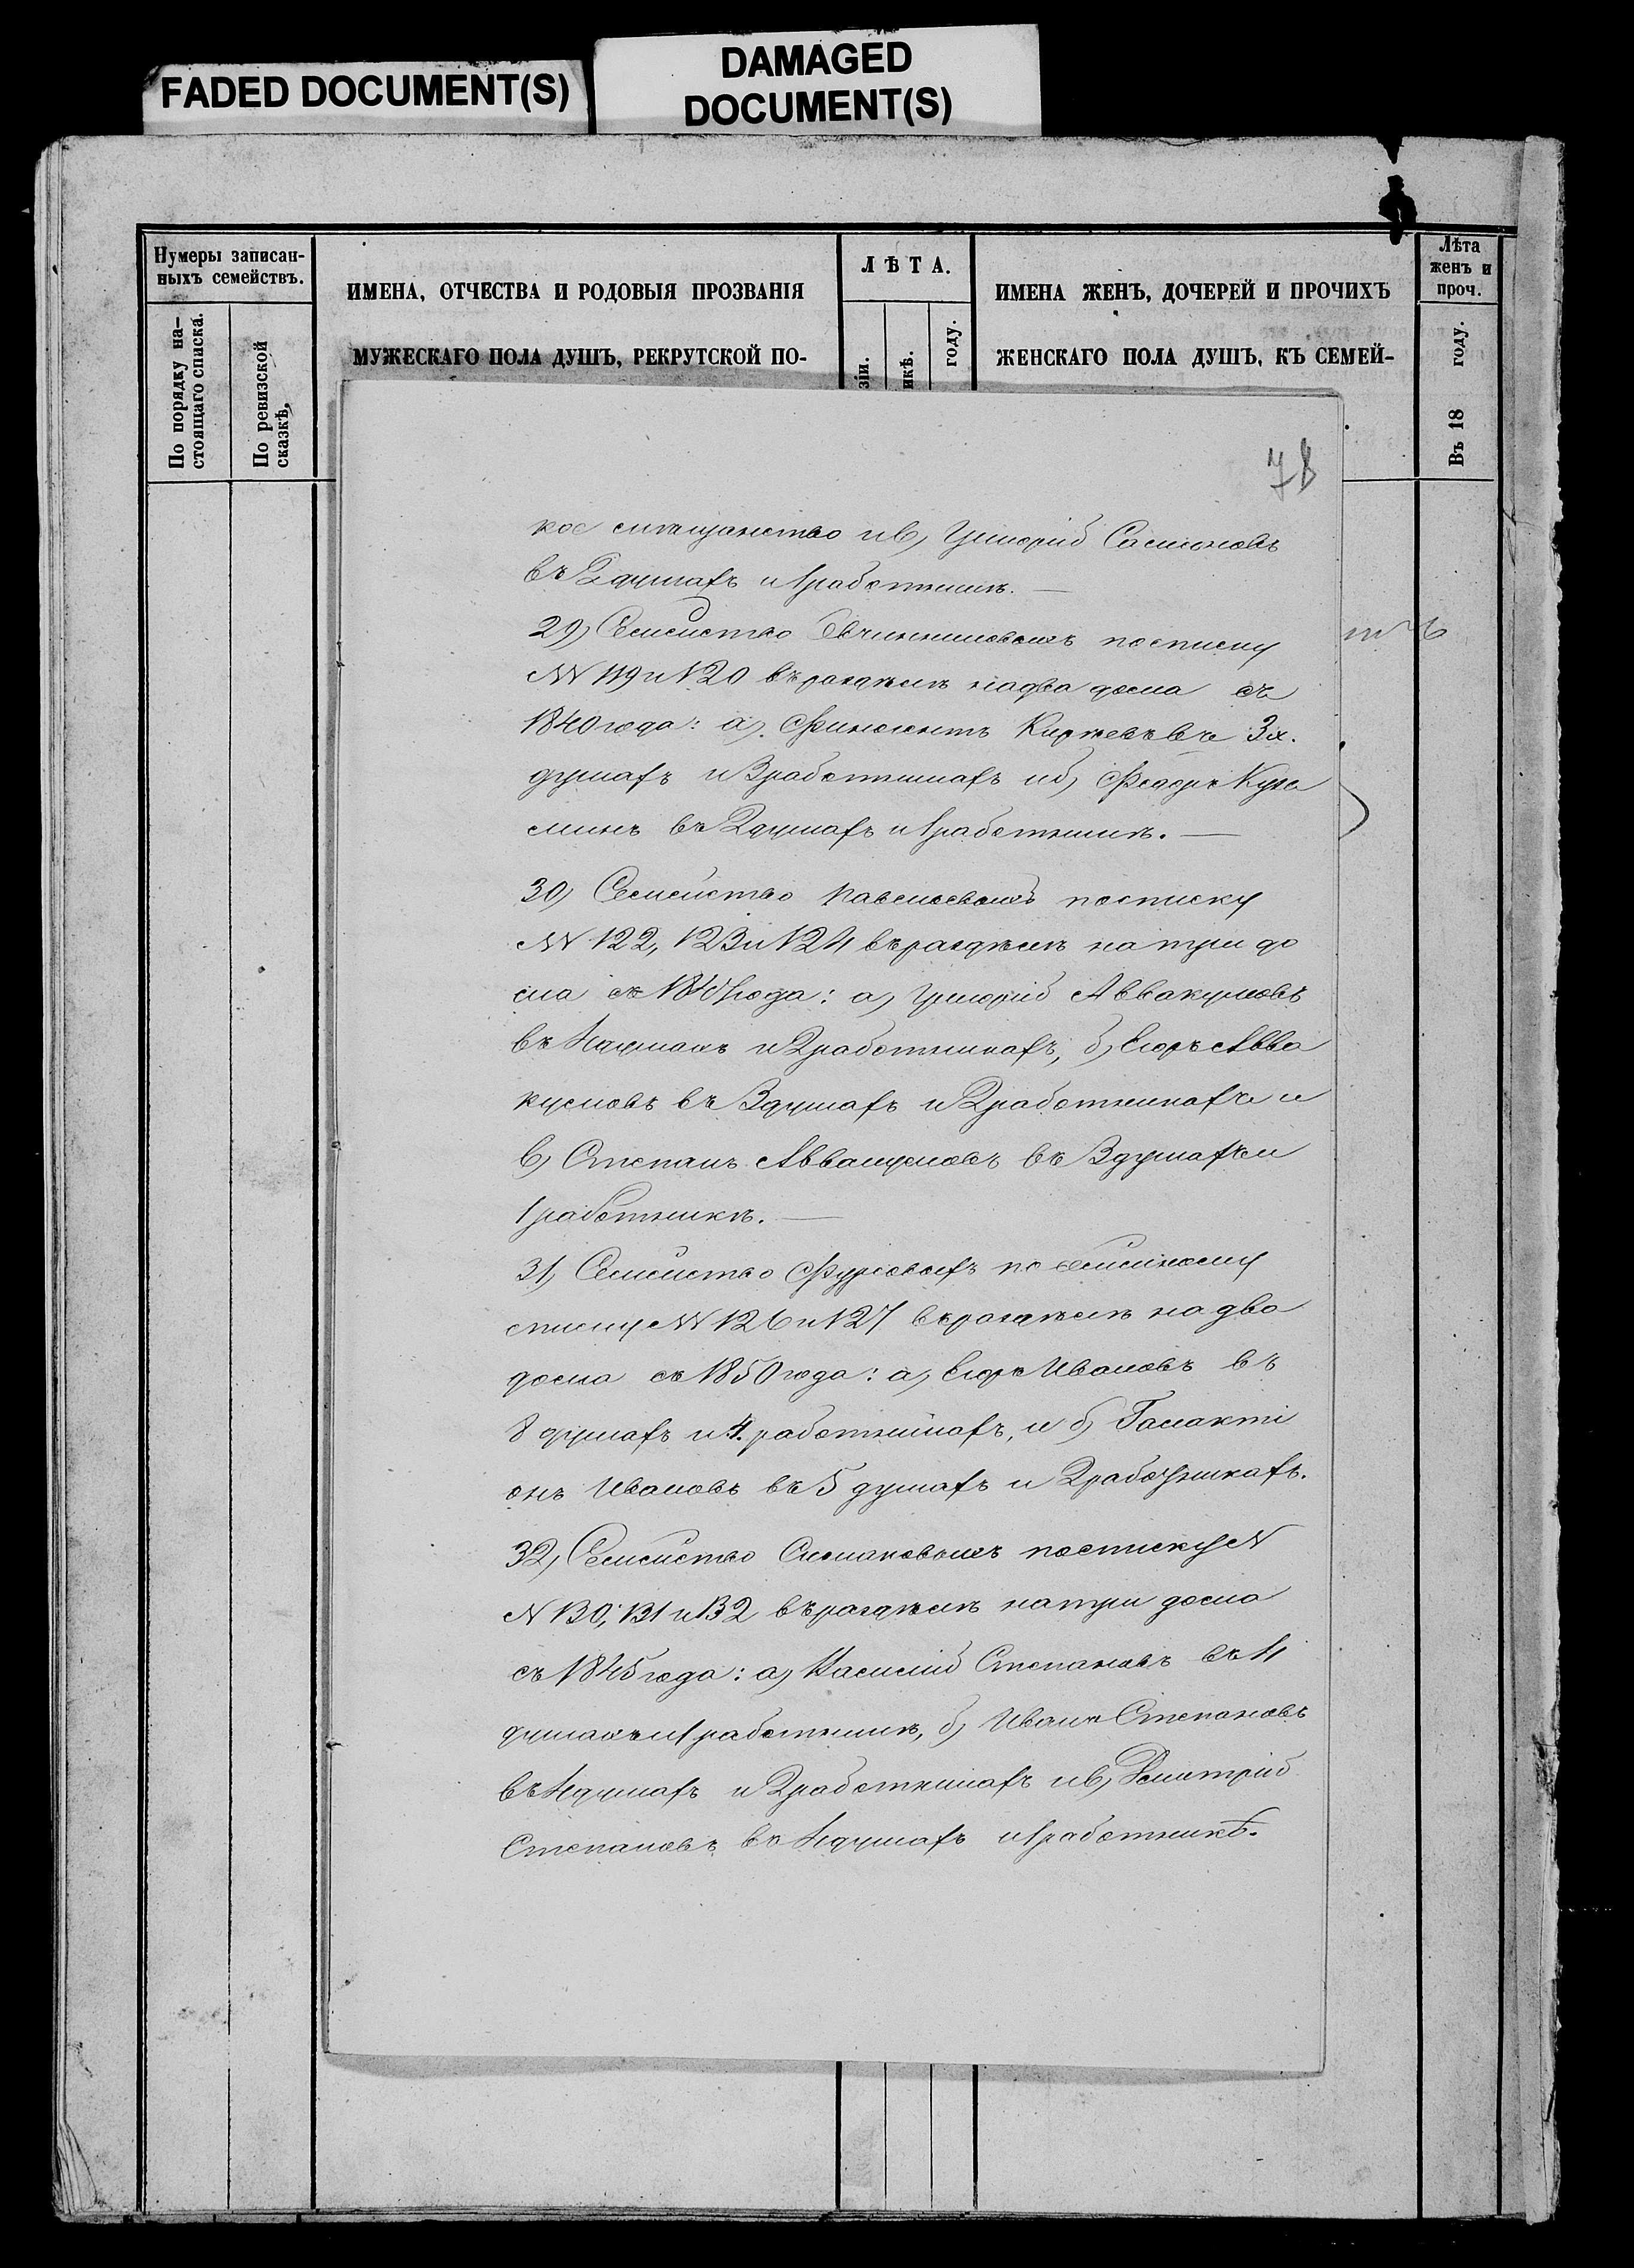 FADED DOCUMENT(S)
DAMAGED
DOCUMENT(S)
Нумеры записан-
ныхъ семействъ.
По порядку на-
стоящаго списка.
По ревизской
сказкѣ.
ИМЕНА, ОТЧЕСТВА И РОДОВЫЯ ПРОЗВАНІЯ
МУЖЕСКАГО ПОЛА ДУШЪ, РЕКРУТСКОЙ ПО-
ЛѢТА.
зіи.
икѣ.
году.
ИМЕНА ЖЕНЪ, ДОЧЕРЕЙ И ПРОЧИХЪ
ЖЕНСКАГО ПОЛА ДУШЪ, КЪ СЕМЕЙ-
Лѣта
женъ и
проч.
Въ 18 году.
78
кое мѣщанство и в) Григорій
въ 2 душахъ и 1 работникѣ. —
29) Семейство Овчинниковыхъ по списку
№№ 119 и 120 въ раздѣлѣ на два дома съ
1840 года: а) въ 3х.
душахъ и 3 работникахъ и б) Федоръ Кузь
минъ въ 2 душахъ и 1 работникѣ. —
30) Семейство по списку
№№ 122, 123 и 124 въ раздѣлѣ на три до
ма съ года: а) Григорій Аввакумовъ
въ 4 душахъ и 2 работникахъ, б) Егоръ Авва
кумовъ въ 3 душахъ и 2 работникахъ и
в) Степанъ Аввакумовъ въ 3 душахъ и
1 работникѣ. —
31) Семейство по семейному
списку №№ 126 и 127 въ раздѣлѣ на два
дома съ 1850 года: а) Егоръ Ивановъ въ
8 душахъ и 4 работникахъ, и б) Галакті
онъ Ивановъ въ 5 душахъ и 2 работникахъ.
32) Семейство по списку №
№ 130, 131 и 132 въ раздѣлѣ на три дома
съ 1845 года: а) Василій Степановъ въ 4
душахъ и 1 работникѣ, б) Иванъ Степановъ
въ 4 душахъ и 2 работникахъ и в) Дмитрій
Степановъ въ 4 душахъ и 1 работникѣ.